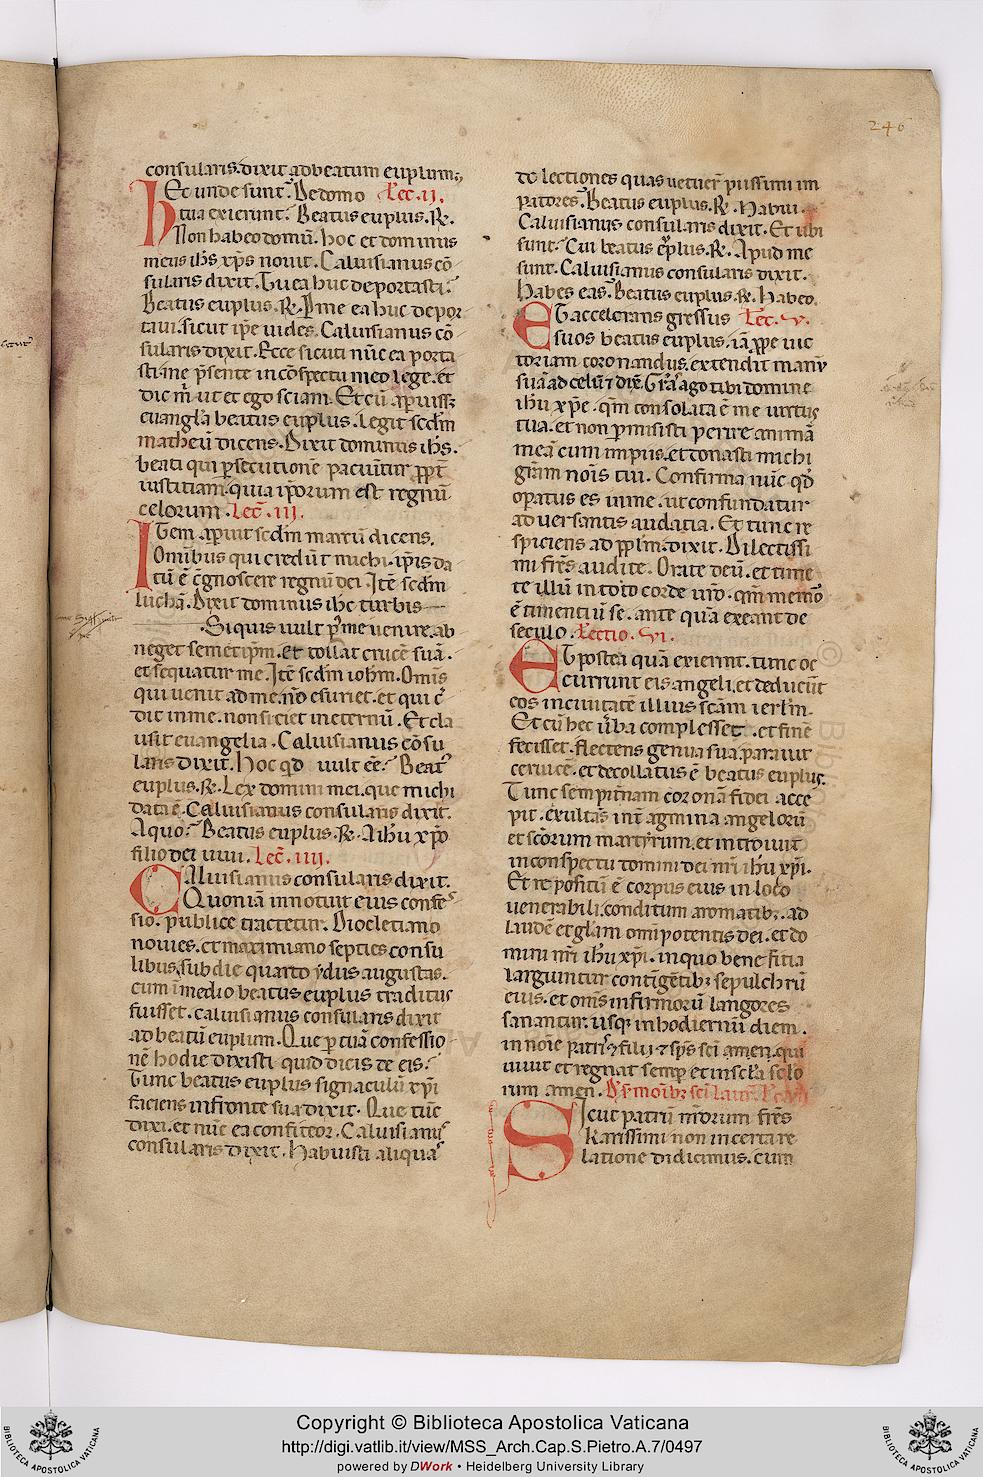 246
consularis. dixit ad beatum euplum;,
Et unde sunt? De domo Lec. ii.
tua exierunt? Beatus euplus. R̃.
Non habeo domũ. hoc et dominus
meus ihs̄ xp̄s nouit. Caluisianus cõ
sularis dixit. Tu ea huc deportasti?
Beatus euplus. R̃. P̱ me ea huc depor
taui. sicut ip̄e uides. Caluisianus cõ
sularis dixit. Ecce sicuti nũc ea porta
sti in me p̄sente in cõspectu meo lege. et
dic m̄ ut et ego sciam. Et cũ aperuiss;
euangl̄a beatus euplus. legit scd̄m
matheũ dicens. Dixit dominus ihs̄.
beati qui p̱secutionẽ paciũtur pp̄t
iustitiam. quia ip̄orum est regnũ
celorum. Lec̄. iii.
ITem aperuit scd̄m marcũ dicens.
Omnibus qui credũt michi. ip̄is da
tũ ẽ cognoscere regnũ dei. Itẽ scd̄m
luchã. Dixit dominus ihc̄ turbis
.Si quis uult p̱ me uenire. ab
neget semetip̄m. et tollat crucẽ suã.
et sequatur me. Itẽ scd̄m ioh̄m. Omĩs
qui uenit ad me. nõ esuriet. et qui c̄
dit in me. non siciet in eternũ. Et cla
usit euangelia. Caluisianus cõsu
laris dixit. Hoc qd̄ uult eẽ? Beat᷒
euplus. R̃. Lex domini mei. que michi
data ẽ. Caluisianus consularis dixit.
A quo? Beatus euplus. R̃. A ihū xp̄o
filio dei uiui. Lec̄. iiii.
CAluisianus consularis dixit.
Quoniã innotuit eius confes
sio. publice tractetur. Diocletiano
nouies. et maximiano septies consu
libus, sub die quarto ydus augustas.
cum ĩ medio beatus euplus traditus
fuisset. caluisianus consularis dixit
ad beatũ euplum. Que p̱ tuã confessio
nẽ hodie dixisti quid dicis de eis?
Tunc beatus euplus signaculũ xp̄i
faciens in fronte sua dixit. Que tũc
dixi. et nũc ea confiteor. Caluisian᷒
consularis dixit. Habuisti aliqua᷒
de lectiones quas uetuer̃ piissimi im
patores? Beatus euplus. R̃. Habui.
Caluisianus consularis dixit. Et ubi
sunt? Cui beatus euplus. R̃. Apud me
sunt. Caluisianus consularis dixit.
Habes eas? Beatus euplus. R̃. Habeo.
ET accelerans gressus Lec. v.
suos beatus euplus, iã p̱pe uic
toriam coronandus. extendit manũ
suã ad celũ ⁊ dix̃. Gr̃as ago tibi domine
ihū xp̄e. qm̄ consolata ẽ me uirtus
tua. et non p̱misisti perire animã
meã cum impiis. et donasti michi
gr̄am noĩs tui. Confirma nũc qd̄
op̱atus es in me. ut confundatur
aduersantis audatia. Et tunc re
spiciens ad pp̄lm. dixit. Dilectissi
mi fr̄es audite. Orate deũ. et time
te illũ in toto corde ur̄o. qm̄ memor
ẽ timentiũ se. ante quã exeant de
seculo. Lectio. vi.
ET postea quã exierint. tunc oc
currunt eis angeli. et deducũt
eos in ciuitatẽ illius scãm ierlm̄.
Et cũ hec ũba complesset. et finẽ
fecisset. flectens genua sua. parauit
ceruicẽ. et decollatus ẽ beatus euplus.
Tunc sempit̃nam coronã fidei acce
pit. exultas int̃ agmina angelorũ
et scõrum martyrum. et introiuit
in conspectu domini dei nr̄i ihū xp̄i.
Et repositũ ẽ corpus eius in loco
uenerabili. conditum aromatib;. ad
laudẽ et gl̄am omĩpotentis dei. et do
mini nr̄i ihū xp̄i. in quo beneficia
larguintur contigẽtib; sepulchrũ
eius. et om̄s infirmorũ langores
sanantur. usq; in hodiernũ diem.
in noĩe patris ⁊ filii ⁊ sp̄s sc̄i amen. qui
uiuit et regnat semp̱ et in sc̄la sclo
rum amen.
Sicut patrũ nr̄orum fr̄es
karissimi non incerta re
latione didicimus. cum
Copyright © Biblioteca Apostolica Vaticana
http://digi.vatlib.it/view/MSS_Arch.Cap.S.Pietro.A.7/0497
powered by DWork • Heidelberg University Library
BIBLIOTECA APOSTOLICA VATICANA
BIBLIOTECA APOSTOLICA VATICANA